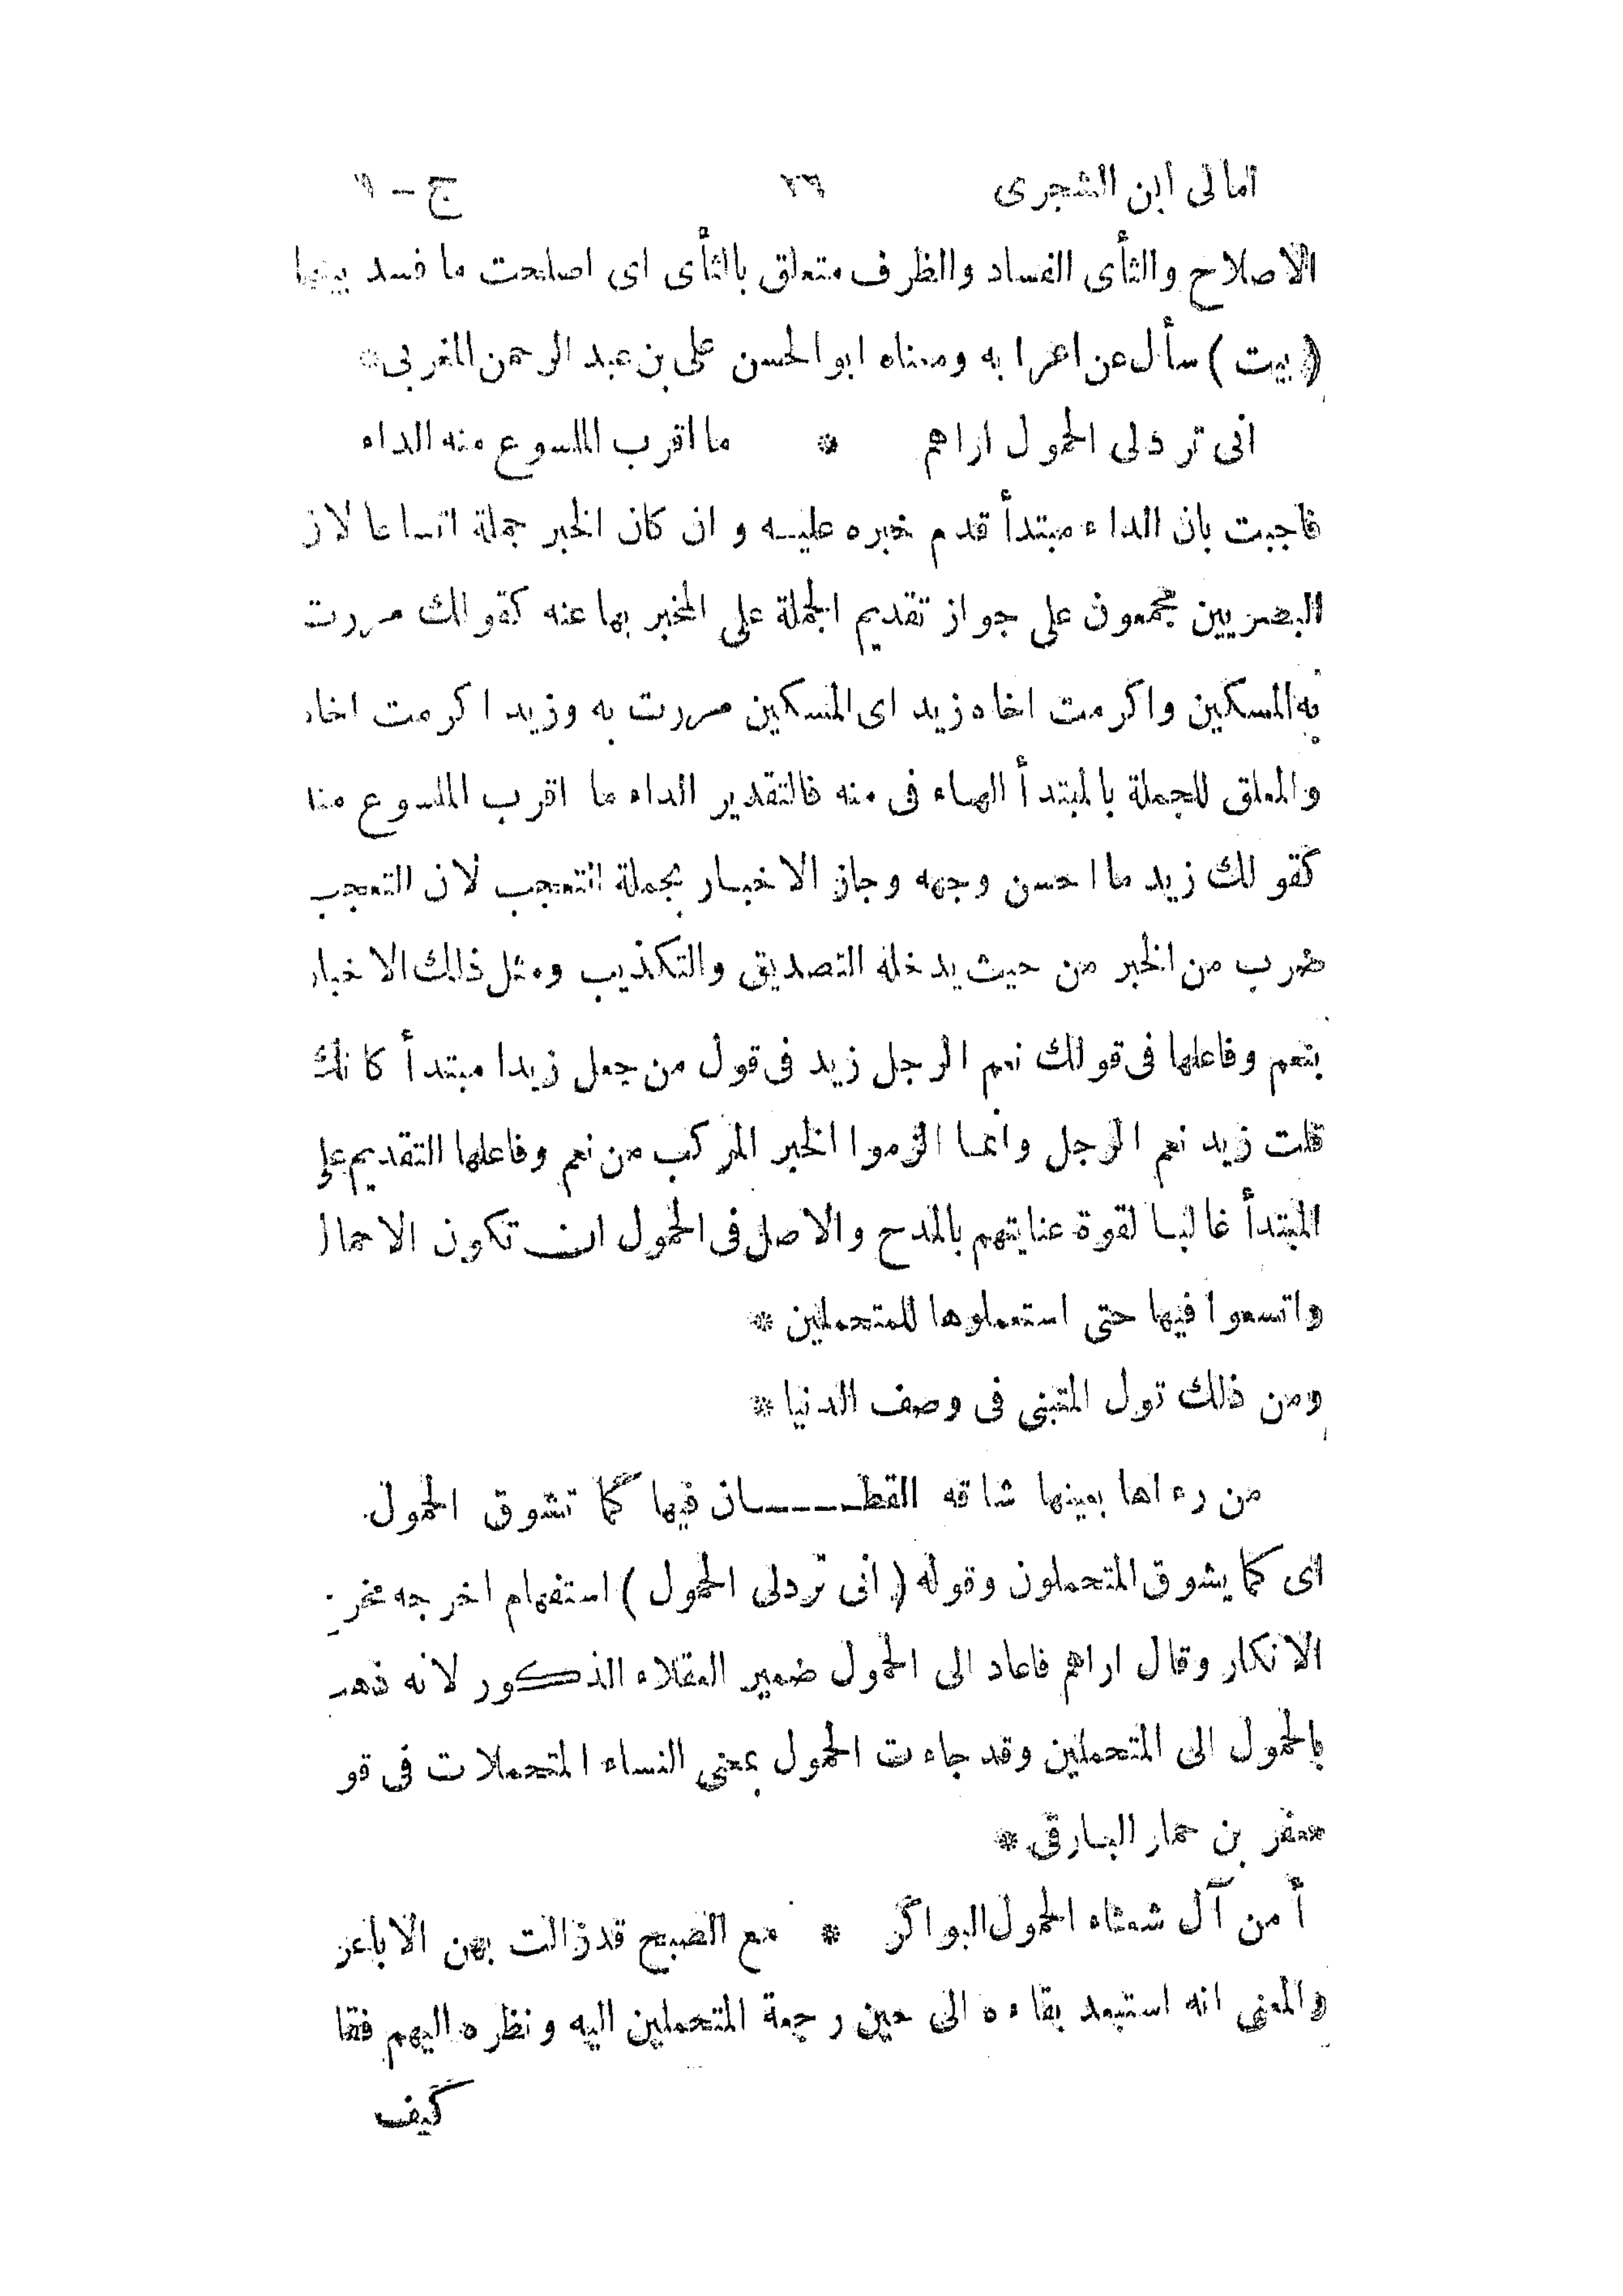 امالى ابن الشجرى ٢٦ ج - ١
الاصلاح والثأى الفساد والظرف متعلق بالثأى اى اصلحت ما فسد بينها
( بيت ) سأل عن اعرابه ومعناه ابوالحسن على بن عبد الرحمن المغربى *
انى تردلى الحمول اراهم * ما اقرب الملسوع منه الداء
فاجبت بان الداء مبتدأ قدم خبره عليه و ان كان الخبر جملة اتساعا لان
البصريين مجمعون على جواز تقديم الجملة على المخبر بها عنه كقولك مررت
به المسكين واكرمت اخاه زيد اى المسكين مررت به وزيد اكرمت اخاه
والمعلق للجملة بالمبتدأ الهاء فى منه فالتقدير الداء ما اقرب الملسوع منه
كقولك زيد ما احسن وجهه وجاز الاخبار بجملة التعجب لان التعجب
ضرب من الخبر من حيث يدخله التصديق والتكذيب ومثل ذلك الاخبار
بنعم وفاعلها فى قولك نعم الرجل زيد فى قول من جعل زيدا مبتدأ كانك
قلت زيد نعم الرجل وانما الزموا الخبر المركب من نعم وفاعلها التقديم على
المبتدأ غالبا لقوة عنايتهم بالمدح والاصل فى الحمول ان تكون الاحمال
واتسعوا فيها حتى استعملوها للمتحملين *
ومن ذلك قول المتنبى فى وصف الدنيا *
من رءاها بعينها شاقه القطـــــان فيها كما تشوق الحمول
اى كما يشوق المتحملون وقوله ( انى تردلى الحمول ) استفهام اخرجه مخرج
الانكار وقال اراهم فاعاد الى الحمول ضمير العقلاء الذكور لانه ذهب
بالحمول الى المتحملين وقد جاءت الحمول بمعنى النساء المتحملات فى قو
معقر بن حمار البارقى *
أمن آل شعثاء الحمول البواكر * مع الصبح قد زالت بهن الاباعر
والمعنى انه استبعد بقاءه الى حين رجعة المتحملين اليه ونظره اليهم فقا
كيف